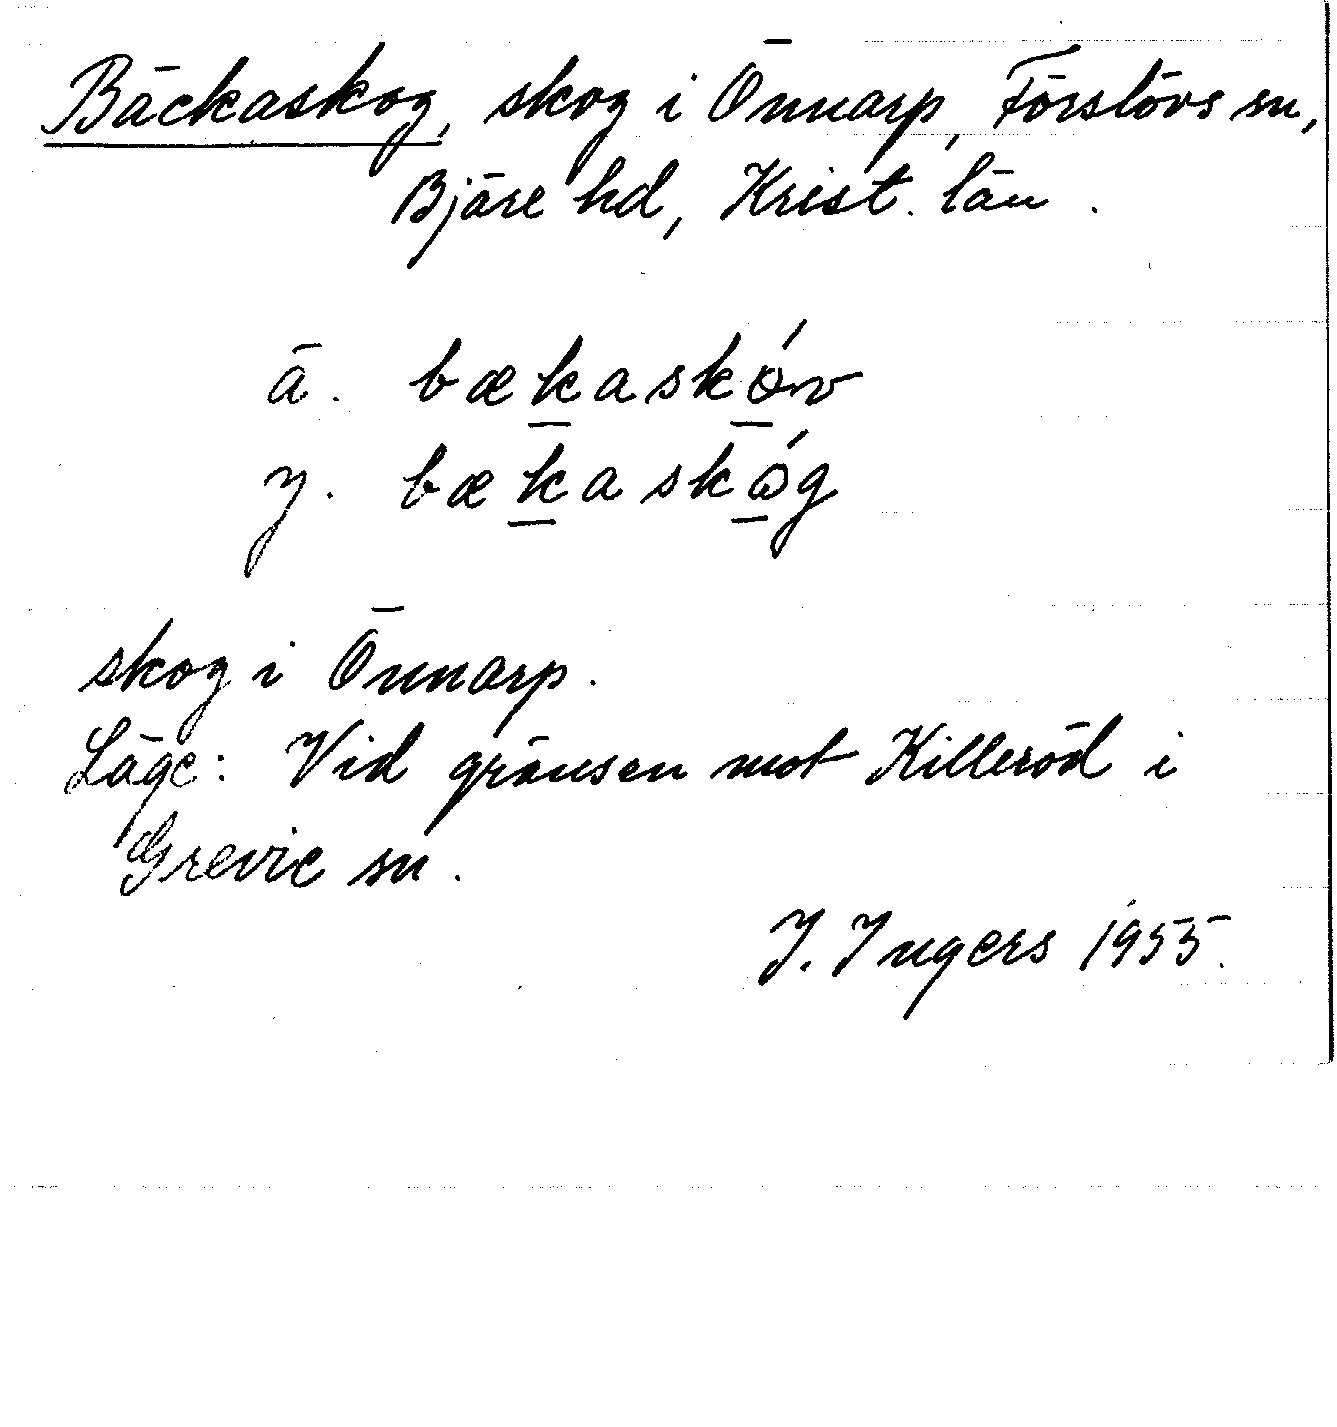 Bäckaskog, skog i Önnarp, Förslövs sn,
Bjäre hd, Krist. län.
ä. bækaskóv
y. bækaskóg
skog i Önnarp.
Läge: Vid gränsen mot Killeröd i
Grevie sn.
I. Ingers 1955.